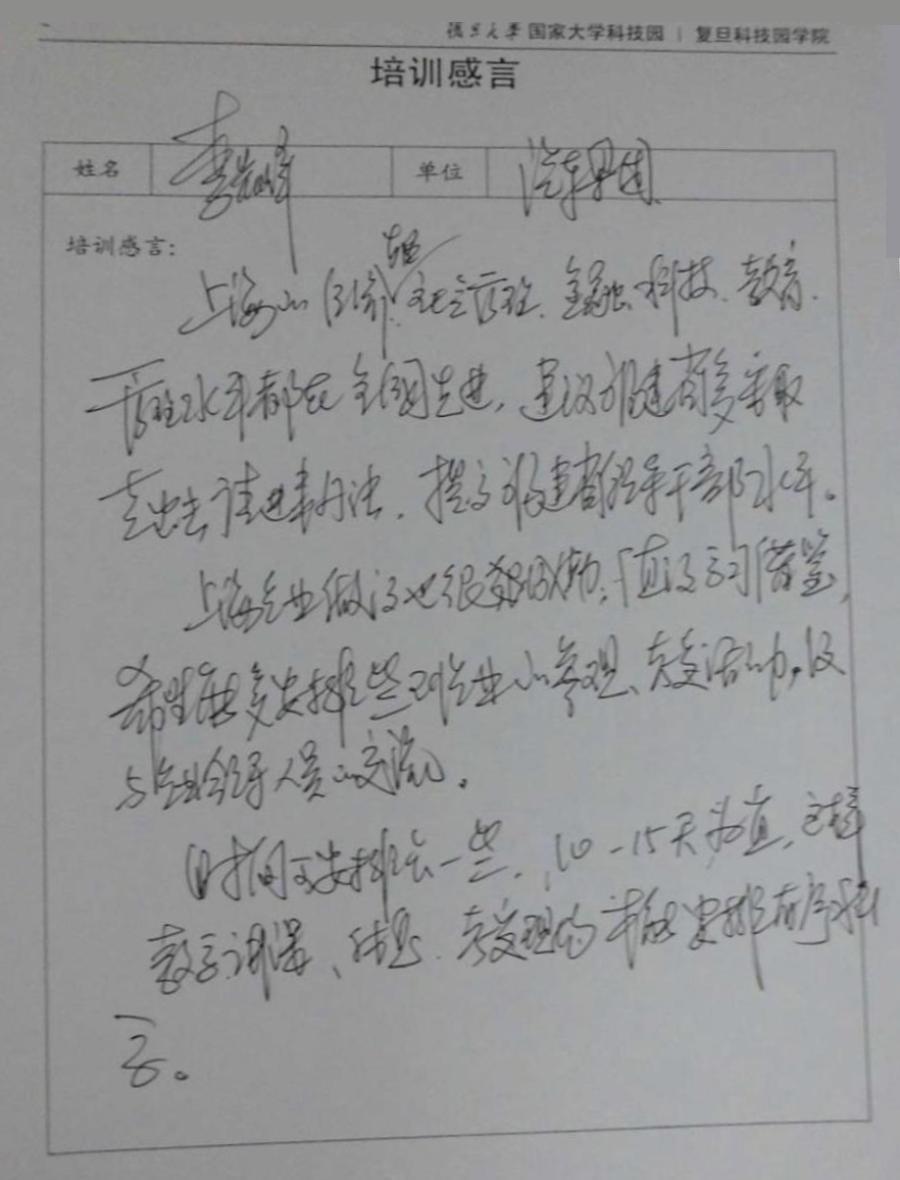 復旦大學 国家大学科技园 | 复旦科技园学院
培训感言
姓名 李 单位 汽车集团
培训感言:
上海的经济、社会管理、金融、科技、教育、
管理水平都在全国先进,建议福建省多采取
走出去请进来办法,提高福建省领导干部水平。
上海企业做法也很 值得学习借鉴,
希望能多安排些到企业的参观、考察活动,及
与企业领导人员的交流。
时间可安排长一些,10-15天为宜,这样
教学课、休息、考察 都能安排有序
些。